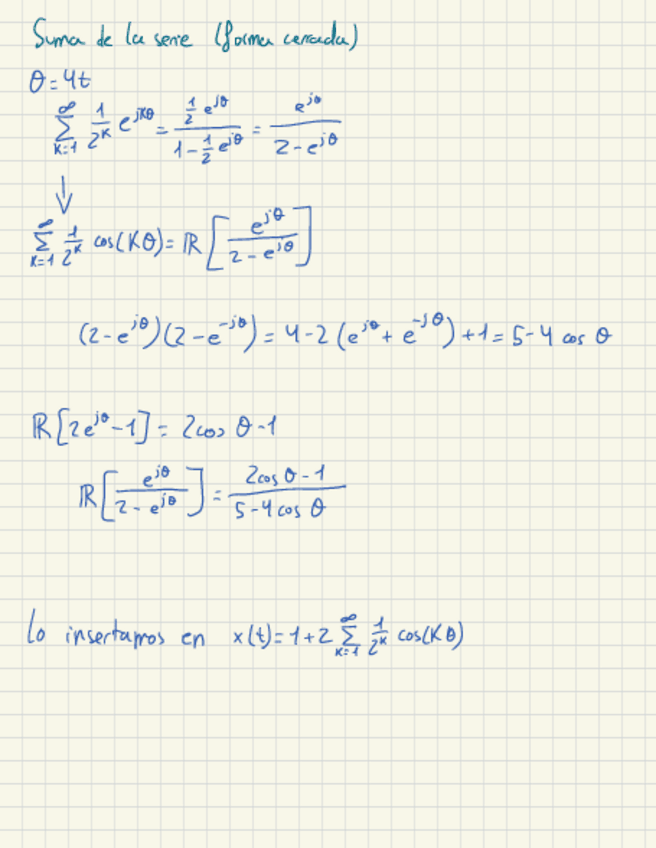 Suma de la serie (forma cerrada)
θ = 4t
∑_{k=1}^{∞} 1/2^k e^{jkθ} = (1/2 e^{jθ})/(1 - 1/2 e^{jθ}) = e^{jθ}/(2 - e^{jθ})
↓
∑_{k=1}^{∞} 1/2^k cos(kθ) = ℝ[e^{jθ}/(2 - e^{jθ})]
(2 - e^{jθ})(2 - e^{-jθ}) = 4 - 2(e^{jθ} + e^{-jθ}) + 1 = 5 - 4 cos θ
ℝ[2e^{jθ} - 1] = 2cos θ - 1
ℝ[e^{jθ}/(2 - e^{jθ})] = (2cos θ - 1)/(5 - 4 cos θ)
Lo insertamos en x(t) = 1 + 2 ∑_{k=1}^{∞} 1/2^k cos(kθ)